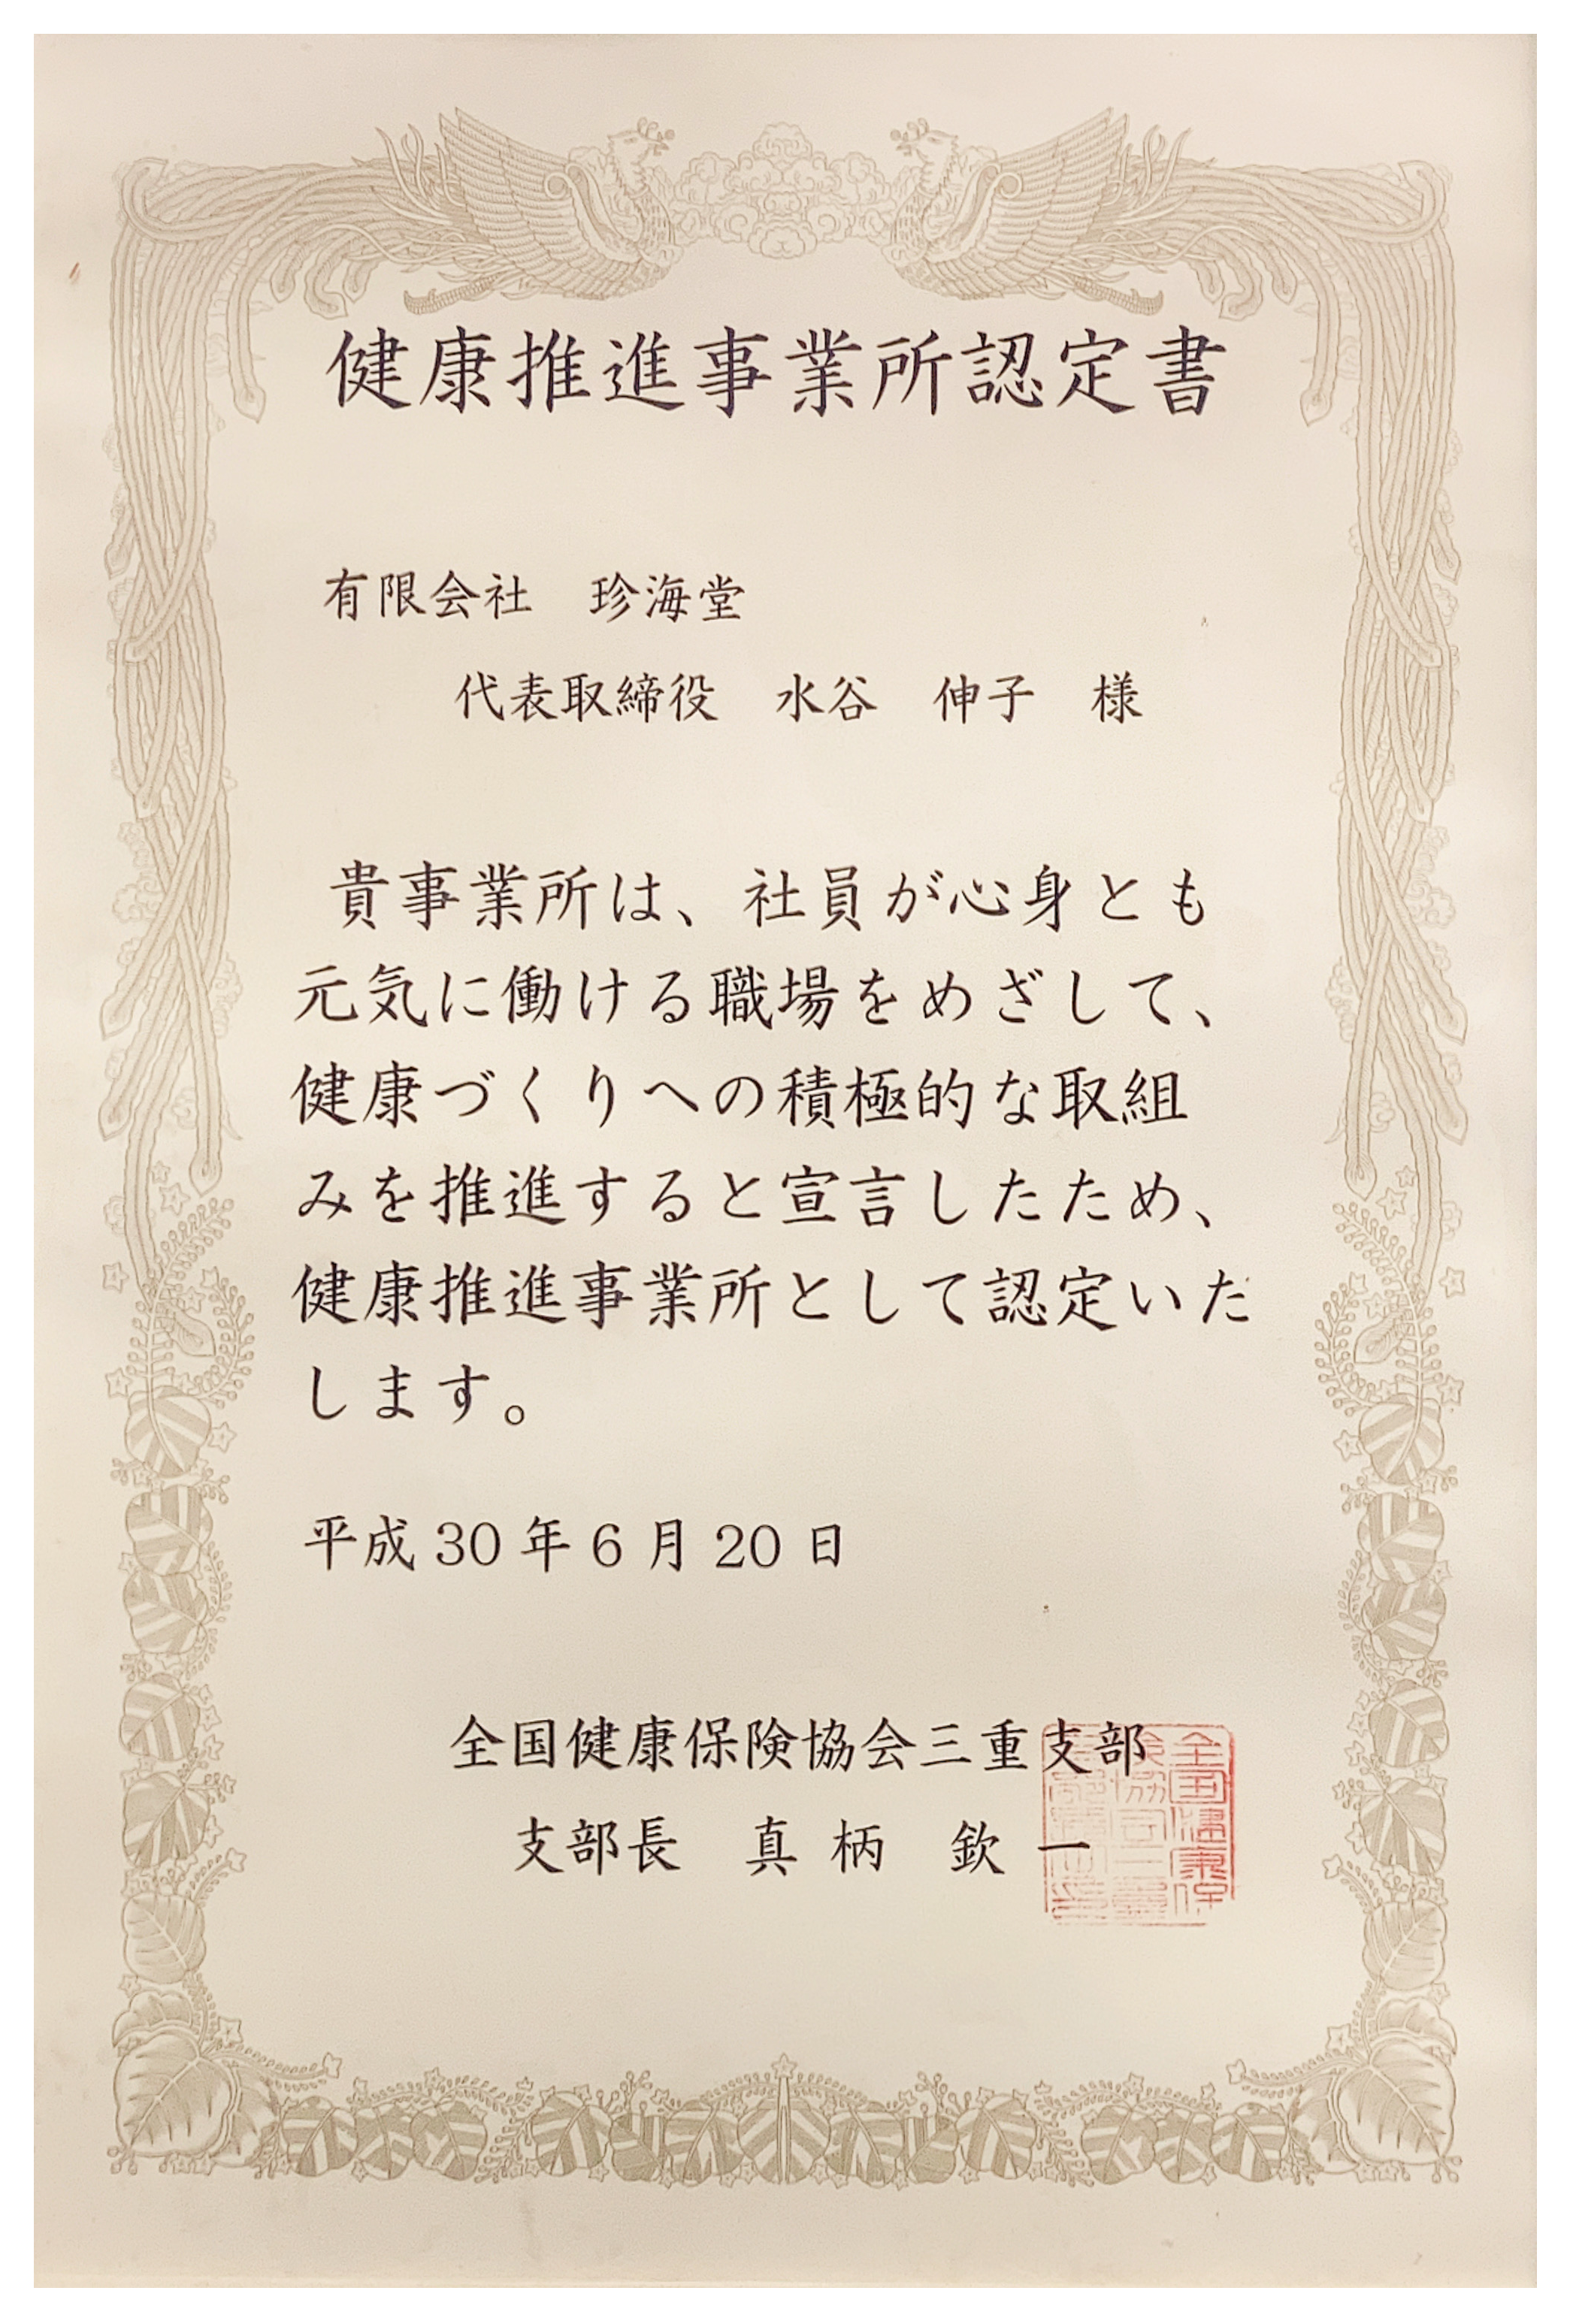 健康推進事業所認定書
有限会社　珍海堂
代表取締役　水谷　伸子　様
貴事業所は、社員が心身とも
元気に働ける職場をめざして、
健康づくりへの積極的な取組
みを推進すると宣言したため、
健康推進事業所として認定いた
します。
平成 30 年 6 月 20 日
全国健康保険協会三重支部
支部長　真 柄　欽 一